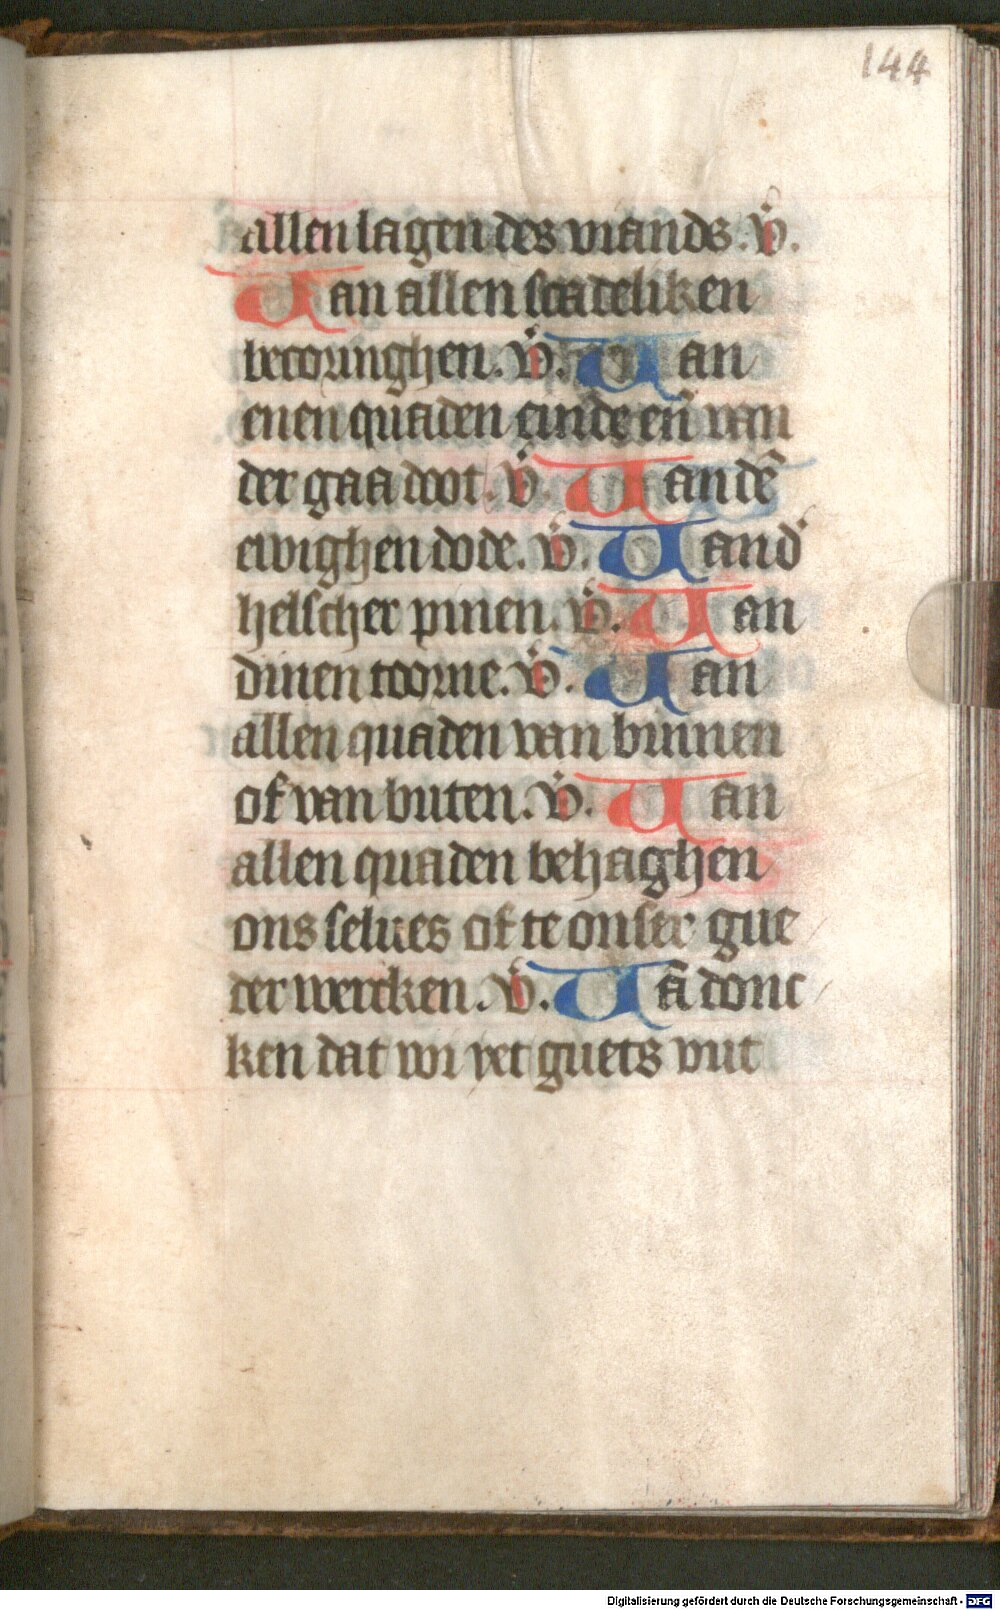 144
allen lagen des viands. v̇.
Uan allen scadeliken
becoringhen. v̇. Uan
enen quaden einde eñ van
der gaa doot. v̇. Uan dē
ewighen dode. v̇. Uan d'
helscher pinen. v̇. Uan
dinen toorne. v̇. Uan
allen quaden van binnen
of van buten. v̇. Uan
allen quaden behaghen
ons selues of te onser gue
der wercken. v̇. Uā donc
ken dat wi yet guets vut
Digitalisierung gefördert durch die Deutsche Forschungsgemeinschaft - DFG